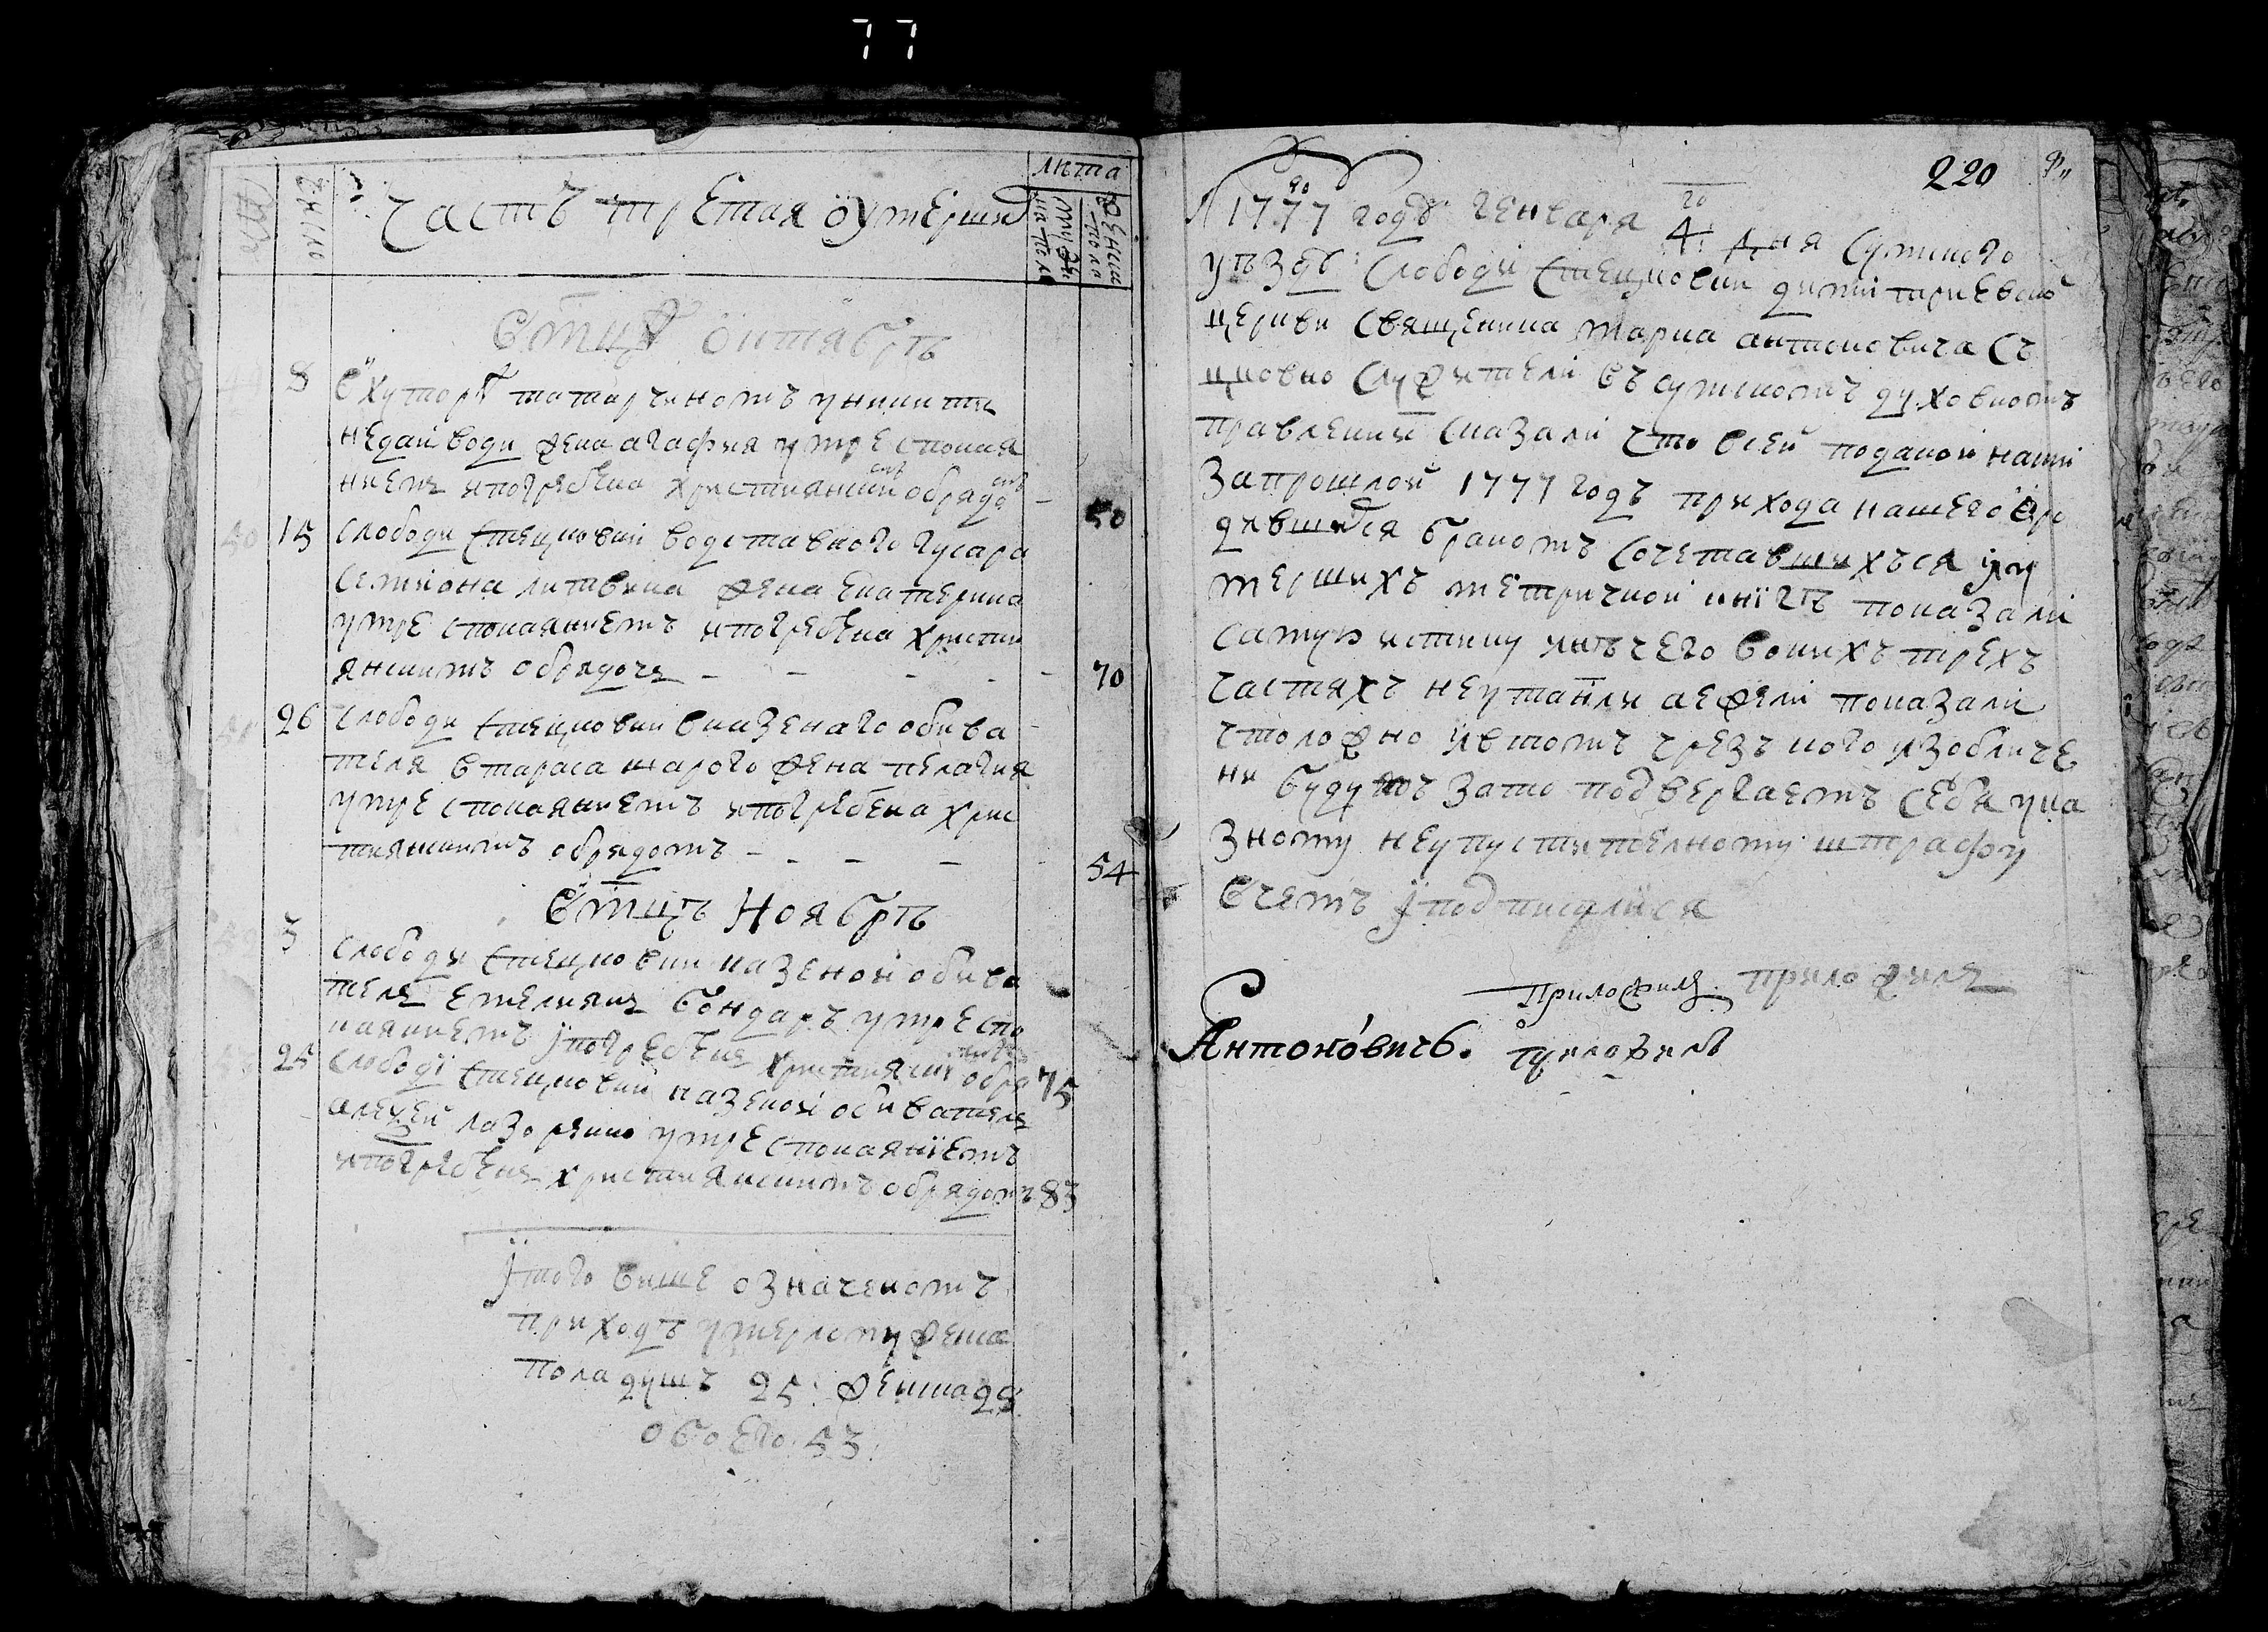 77
лѣта
число
Часть третая оумершихъ
мужеска пола
женска пола
В мцѣ октябрѣ
8 В хуторѣ татарчиномъ у никити
недайводи жена агафия умре спокая
ниемъ ипогребена християнскимъ обрядомъ – 50
15 Слободи Стецковки водставного гусара
Семиона литвина жена екатерина
умре спокаяниемъ ипогребена христи
янскимъ обрядомъ – – – – – 70
26 Слободи Стецковки вказенаго обива
теля втараса шарого жена пелагия
умре спокаяниемъ ипогребена хрис
тиянскимъ обрядомъ – – – – 54
В мцѣ Ноябрѣ
3 Слободи Стецковки казеной обива
тель емелиянъ бондаръ умре спо
каяниемъ ї погребенъ християнскимъ обря 75
25 Слободї Стецковки казеной обиватель
алеѯей лазоренко умре спокаянїемъ
ипогребенъ християнскимъ обрядомъ 83
Їтого више означеномъ
приходѣ умерло мужеска
пола душъ 25: женска 28
обоего. 53:
220
1777 году генваря 4: дня Сумского
уѣзду Слободи Стецковки димитриевской
церкви Священика марка антоновича Съ
цковно служители въ сумскомъ духовномъ
правлении сказали что всей поданой нами
запрошлой 1777 годъ прихода нашего оро
дившихся бракомъ Сочетавшихъся їу
мершихъ метричной кнїгѣ показали
самую истину инѣчего воихъ трехъ
частяхъ неутаили аежели показали
что ложно ивтомъ чрезъ кого изобличе
ни будутъ зато подвергаемъ себя ука
зному неупустителному штрафу
вчемъ ї подписалися
приложилъ. приложилъ
Антоно́вичъ. приложилъ